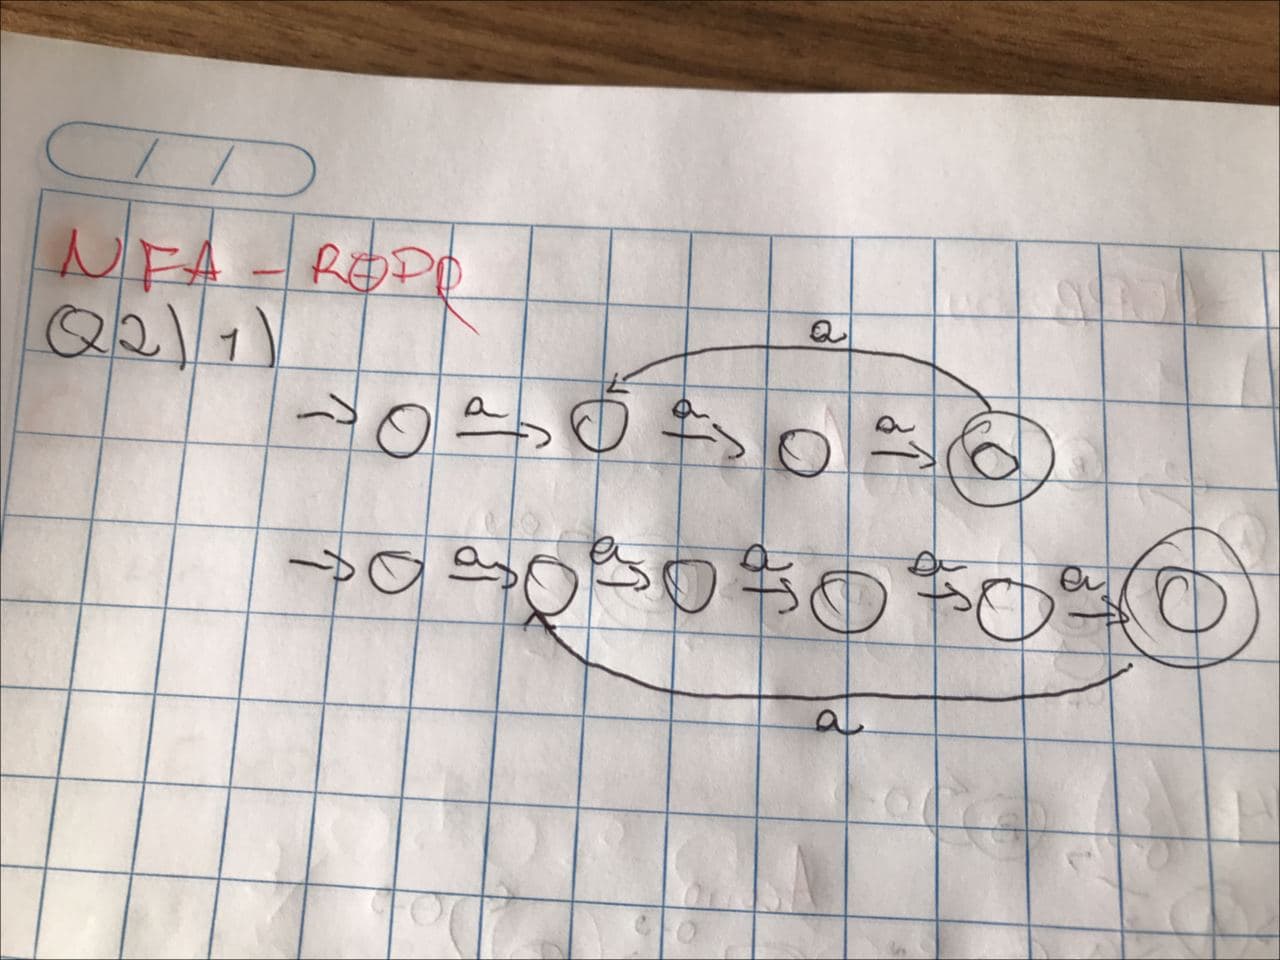 NFA - ROPR
Q2) 1)
a
→ a → a → a →
→ a → a → a → a → a →
a